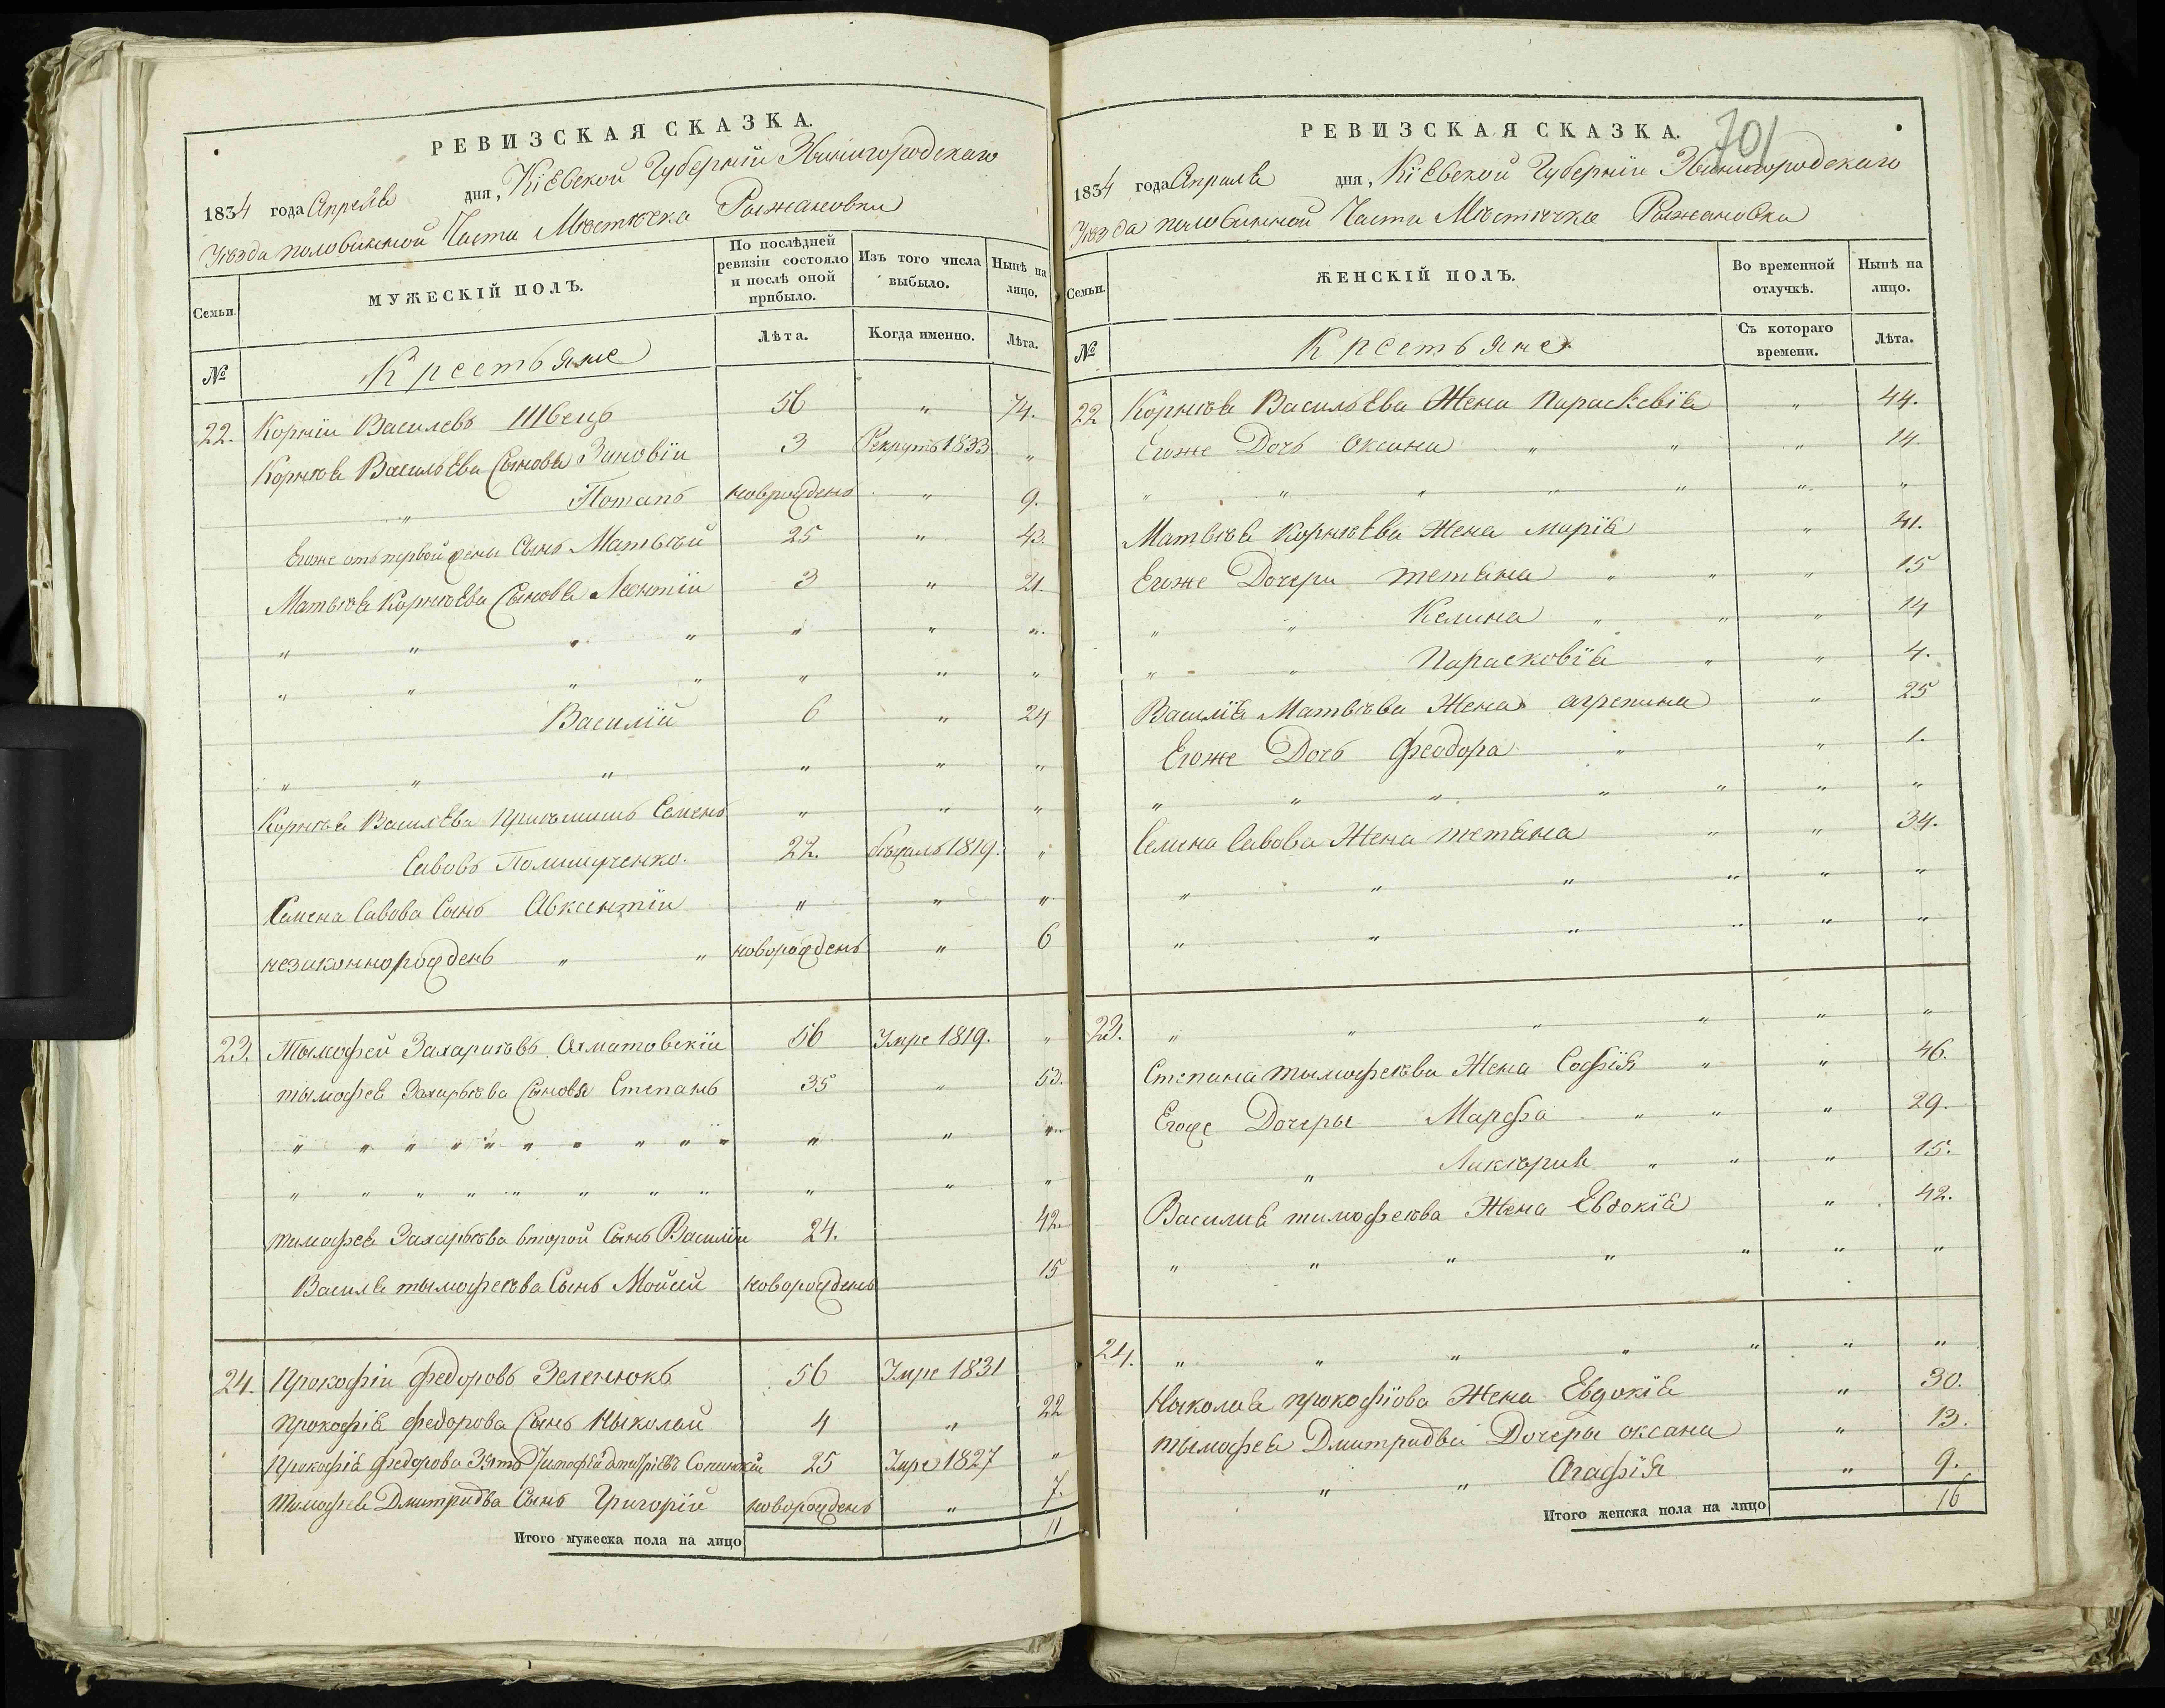 РЕВИЗСКАЯ СКАЗКА.
1834 года Апреля дня, Кіевской Губерніи Звинигородскаго
Уѣзда половинной Части Мѣстѣчка Рыжановки
Семьи.
МУЖЕСКІЙ ПОЛЪ.
По послѣдней ревизіи состояло и послѣ оной прибыло.
Изъ того числа выбыло.
Нынѣ на лицо.
№
Крестьяне
Лѣта.
Когда именно.
Лѣта.
22. Корнїи Василевъ Швецъ 56 " 74.
Корнѣя Васильева Сыновья Зиновїи 3 Рекрутъ 1833 "
" Потапъ новрожденъ " 9.
Егоже отъ первой жены Сынъ Матвѣй 25 " 43.
Матвѣя Корнѣева Сыновья Леонтїи 3 " 21.
" " " " " " "
" " " " " " "
Василїй 6 " 24
" " " " " "
Корнѣя Василева Семенъ " " "
Савовъ Полищученко. 22. 1819. "
Семена Савова Сынъ Авксентїи " " "
незаконнорожденъ " " новорожденъ " 6
23. Тымофей Захариевъ Ахматовскїи 56 Умре 1819. "
тымофея Захарьѣва Сыновья Степанъ 35 " 53.
" " " " " " " " " " " " "
" " " " " " " " " " "
тимофея Захарьѣва второй Сынъ Василїи 24. 42.
Василя тымофеѣва Сынъ Мойсей новорожденъ 15
24. Прокофїи Федоровъ Зеленюкъ 56 Умре 1831
Прокофїя Федорова Сынъ Ныколай 4 " 22
Прокофїя Федорова Зять Тимофѣй Дмитрїевъ 25 Умре 1827 "
Тимофѣя Дмитриева Сынъ Григорїй новорожденъ " 7.
Итого мужеска пола на лицо 11
701
РЕВИЗСКАЯ СКАЗКА.
1834 года Апреля дня, Кїевской Губернїи Звинигородскаго
Уѣзда половинной Части Мѣстѣчка Рыжановки
Семьи.
ЖЕНСКІЙ ПОЛЪ.
Во временной отлучкѣ.
Нынѣ на лицо.
№
Крестьяне
Съ котораго времени.
Лѣта.
22 Корнѣя Васильева Жена Параскевїя " 44.
Егоже Дочь Оксана " " " 14.
" " " " " " "
Матвѣя Корнѣева Жена Марїя " 41.
Егоже Дочери тетяна " " " 15
" " Келина " " " 14
" " Парасковїя " " 4.
Василїя Матвѣева Жена агрепина " 25
Егоже Дочь Феодора " " 1.
" " " " " " "
Семена Савова Жена тетяна " " 34.
" " " " " "
" " " " " "
23. " " " " " "
Степана тымофеѣва Жена Софїя " " 46.
Егоже Дочеры Марфа " " " 29.
" Ликѣрия " " " 15.
Василия тимофеѣва Жена Евдокїя " 42.
" " " " " " "
24. " " " " " " "
Ныколая прокофїова Жена Евдокїя " 30.
тымофея Дмитриева Дочеры оксана " 13.
" " Агафїя " 9.
Итого женска пола на лицо 16